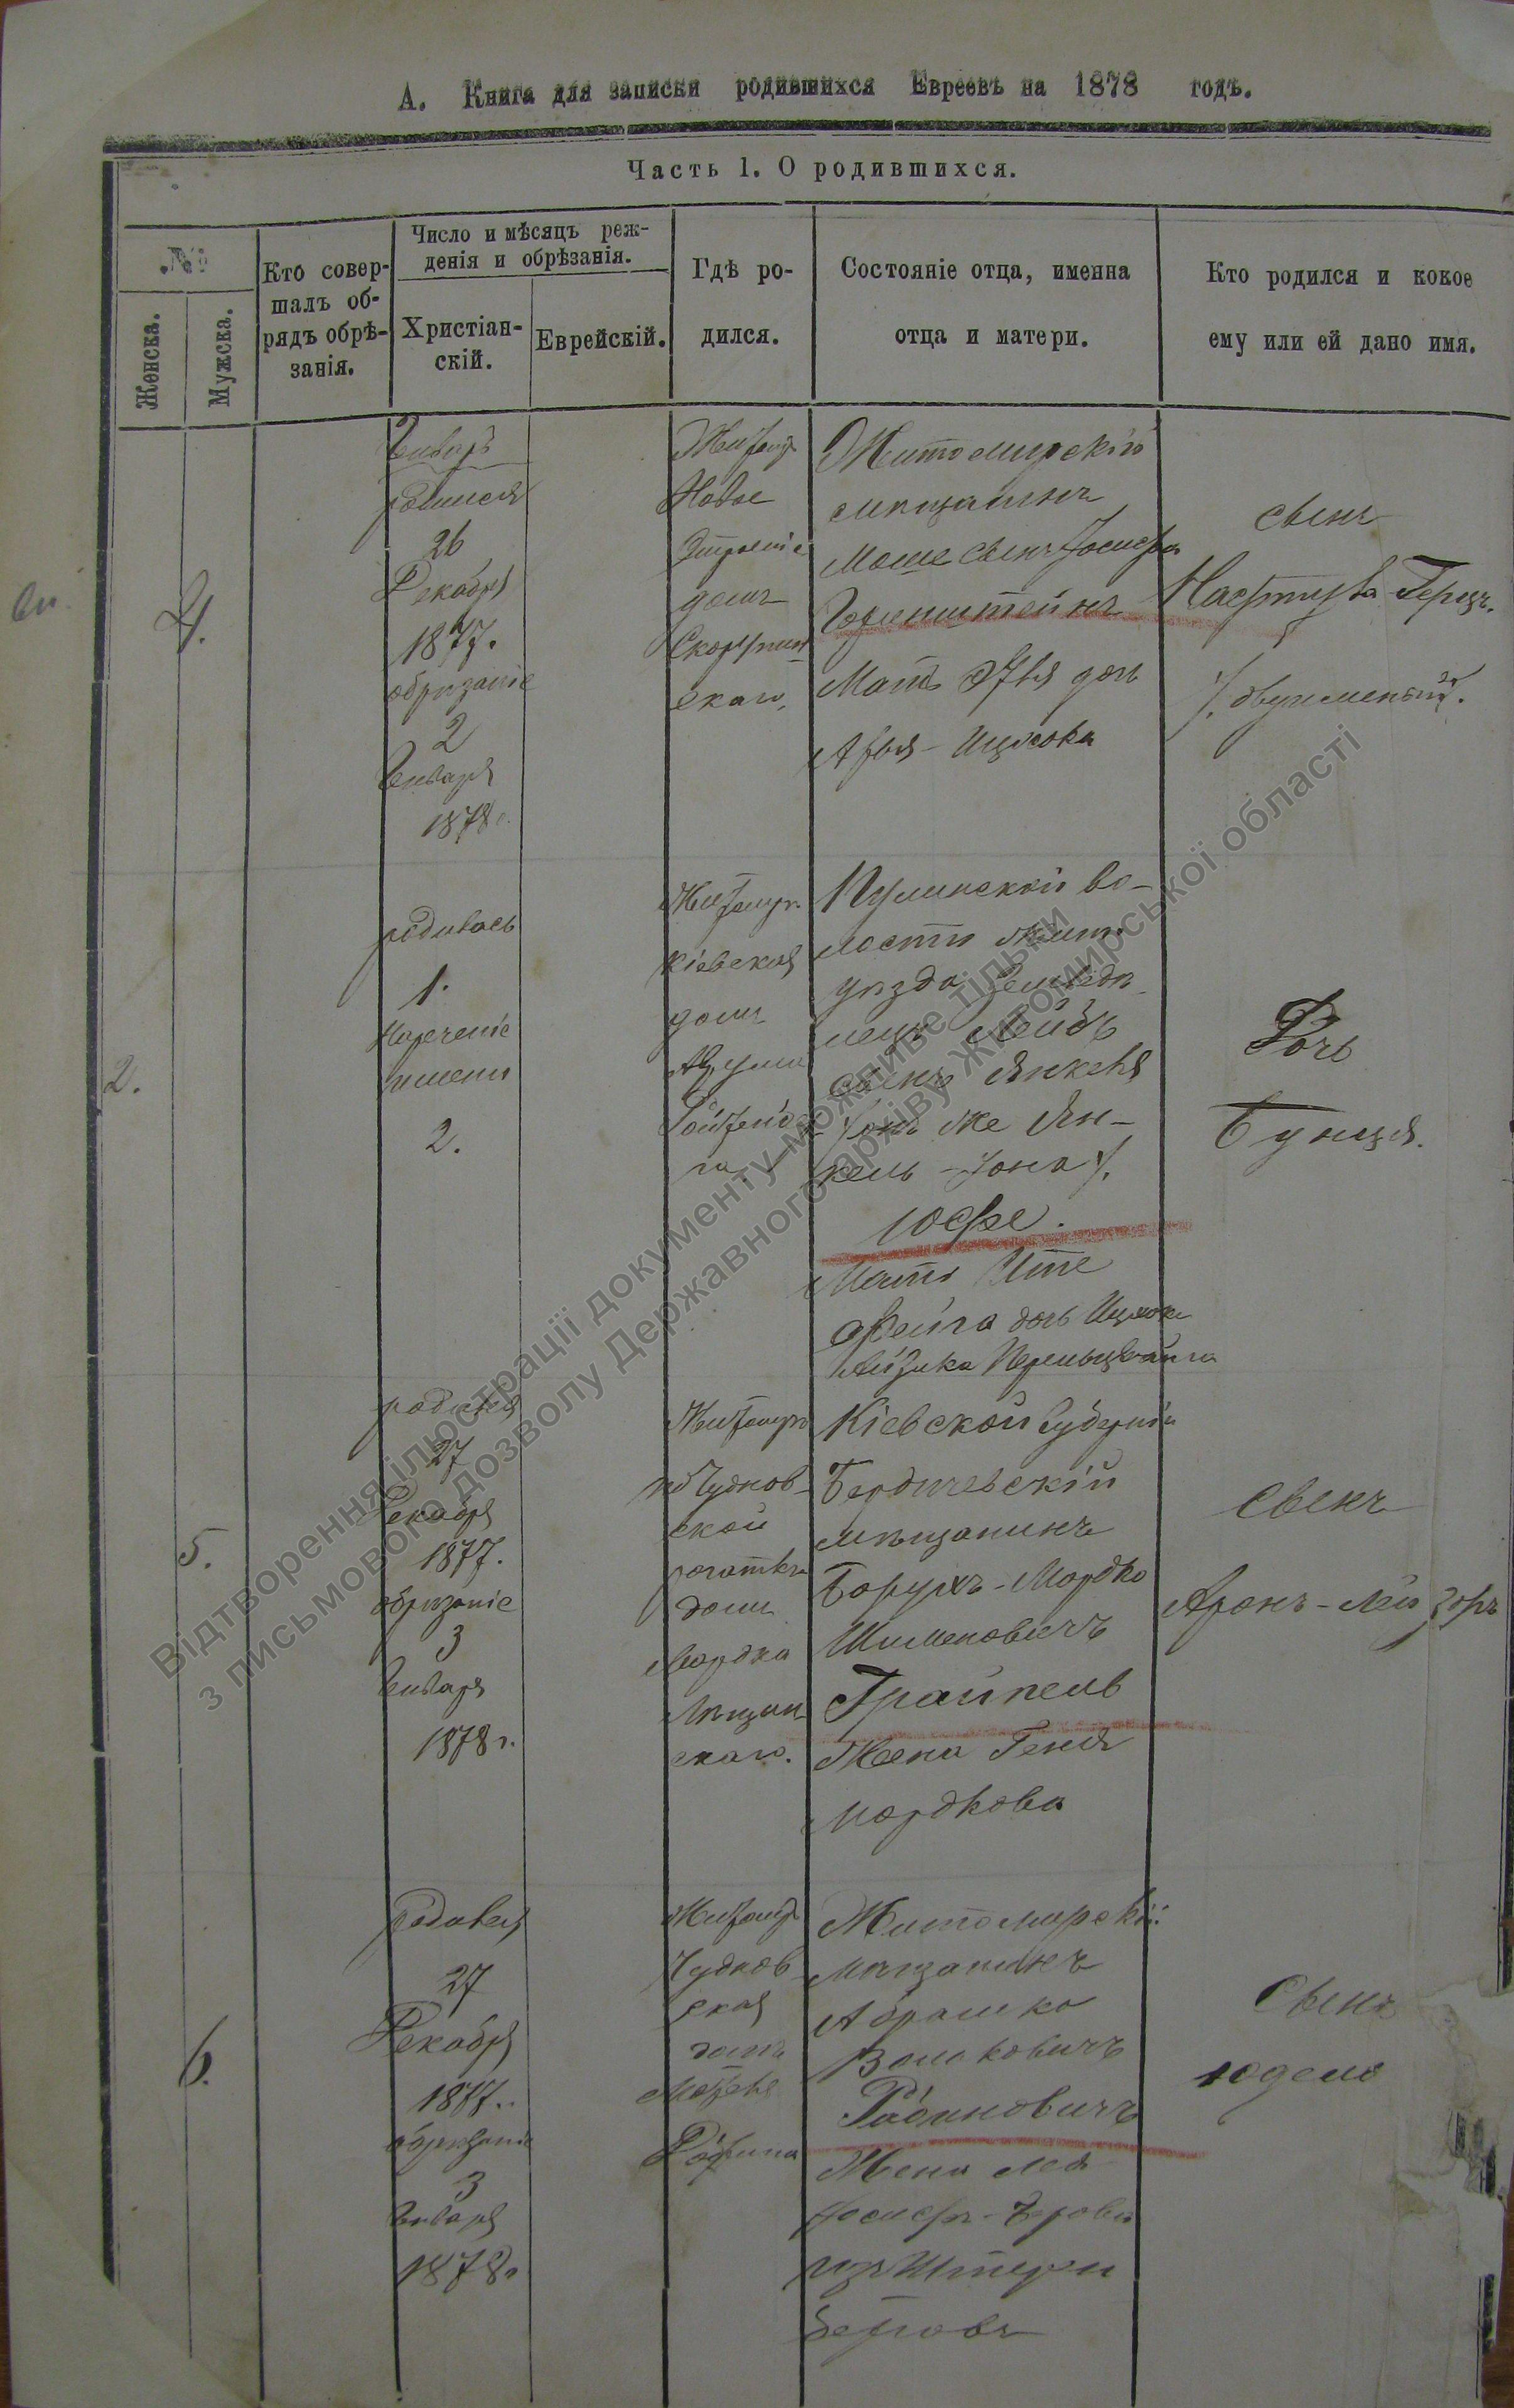 А. Книга для записки родившихся Евреевъ на 1878 годъ.
Часть 1. О родившихся.
№
Женска.
Мужска.
Кто совер-
шалъ об-
рядъ обрѣ-
занія.
Число и мѣсяцъ реж-
денія и обрѣзанія.
Христіан-
скій.
Еврейскій.
Гдѣ ро-
дился.
Состояніе отца, именна
отца и матери.
Кто родился и кокое
ему или ей дано имя.
4.
Январь
родился
26
Декабря
1877.
обрѣзаніе
2
Января
1878 г.
Житомир
Новое
Строеніе
домъ
скаго.
Житомирскій
мѣщанинъ
Моше сынъ Іосифа
Горенштейнъ
Мать Хвя дочь
Арья - Ицхока
сынъ
Герцъ.
/. двуименный.
2.
родилась
1.
Нареченіе
имени
2.
Житомир
Кіевская
домъ
Пулинской во-
лости Жит.
уѣзда Земледѣ-
лецъ Лейбъ
сынъ Янкеля
/онъ же Ян-
кель - Іона/.
Юфе.
Мать Ите
Фейга дочь Ицхока
Айзика Перельцвайга
Дочь
Бунця.
5.
родился
27
Декабря
1877.
обрѣзаніе
3
Января
1878 г.
Житомир
по Чуднов-
ской
рогаткѣ
домъ
Мордка
скаго.
Кіевской Губерніи
Бердичевскій
мѣщанинъ
Борухъ - Мордко
Шимоновичъ
Грайпель
Жена Геня
Мордкова
сынъ
Аронъ - Лейзоръ
6.
родился
27
Декабря
1877.
обрѣзаніе
3
Января
1878 г.
Житомир
Чуднов-
ская
домъ
Житомирскій
мѣщанинъ
Абрамко
Волковичъ
Рабиновичъ
Жена Лея
Іосифъ - Берова
изъ Штерн
берговъ
сынъ
Юдель
Відтворення ілюстрації документу можливе тільки
з письмового дозволу Державного архіву Житомирської області